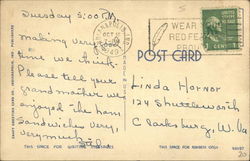 Tuesday 5:00 P.M.
making very good
time we think.
Please tell your
grandmother we
enjoyed the ham
sandwiches very,
very much.
WEAR
RED FEA
PROV
1
POST CARD
Linda Hornor
124 Shuttleworth
Clarksburg, W. Va
THIS SPACE FOR WRITING MESSAGES
THIS SPACE FOR ADDRESS ONLY